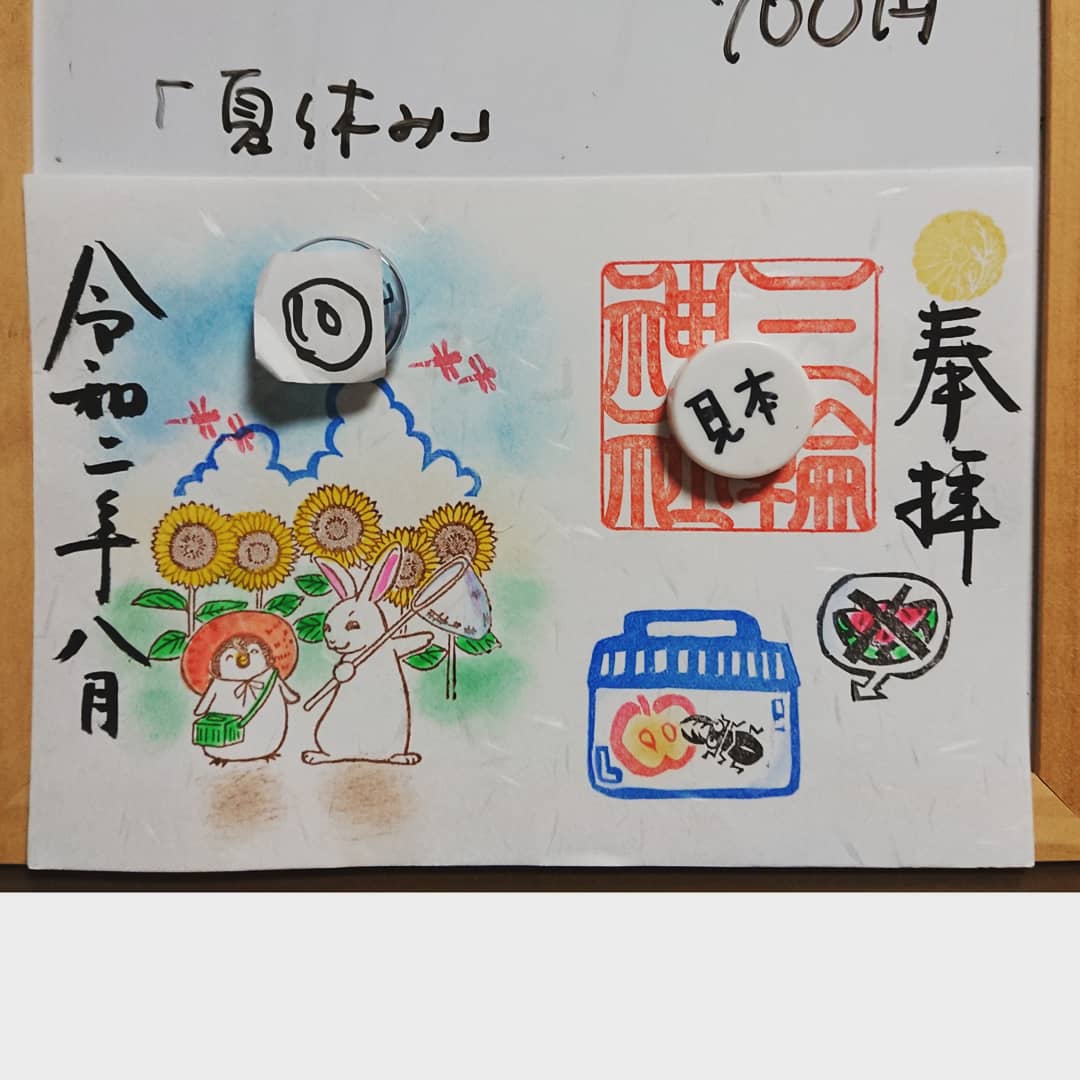 700円
「夏休み」
奉拝
三輪
神社
見本
⑩
令和二年八月